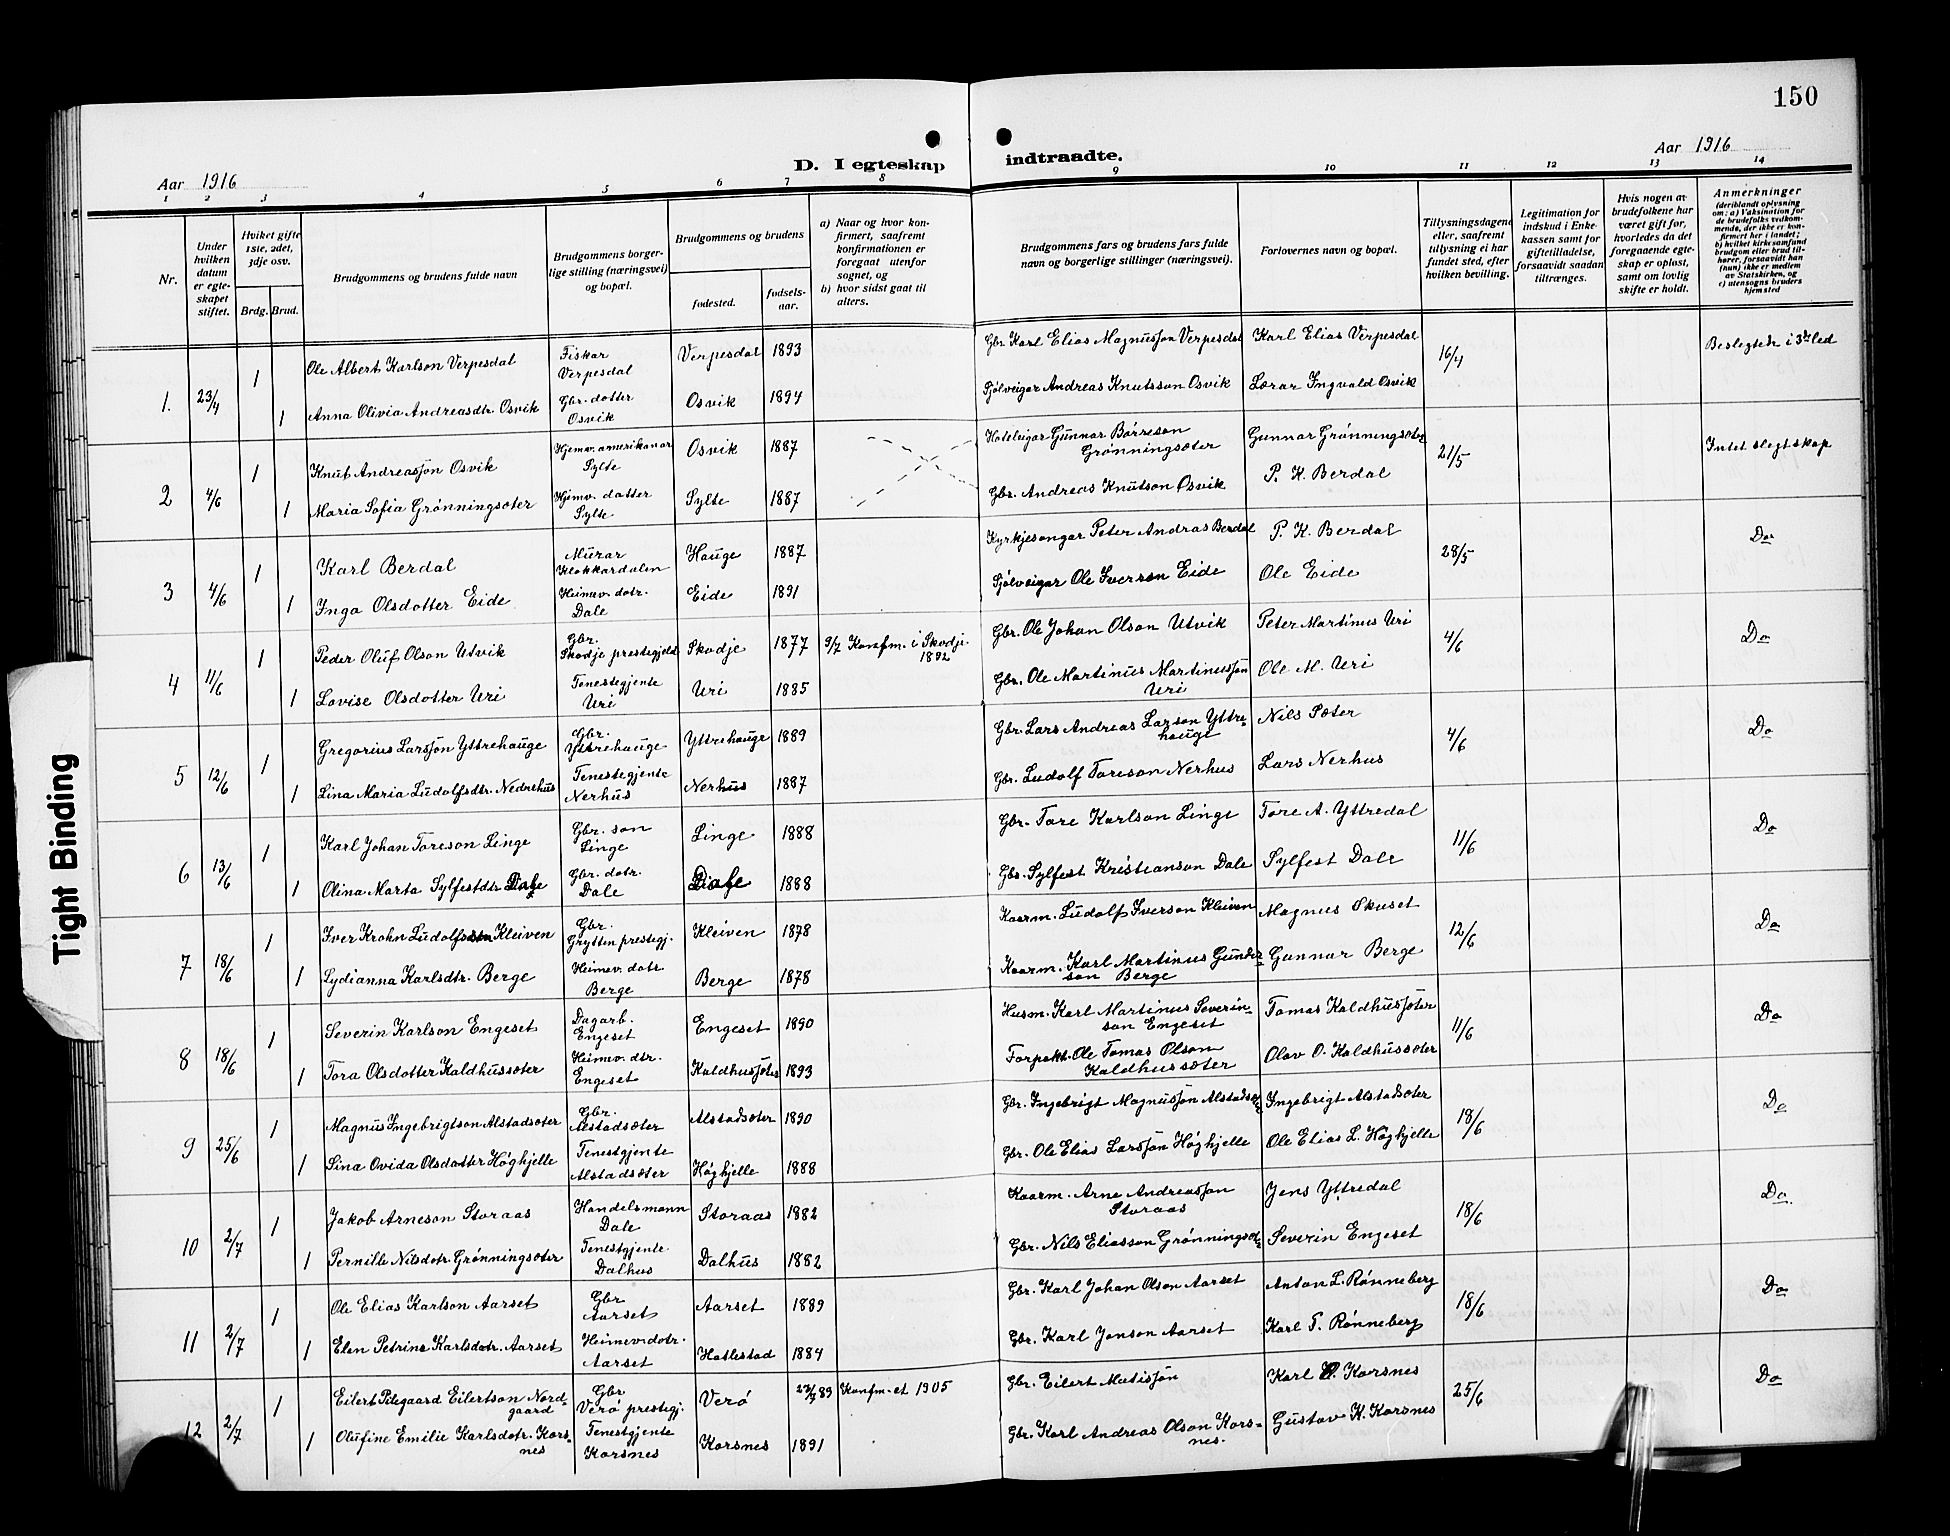 150
D. I egteskap indtraadte.
Aar 1916
Aar 1916
1 2 3 4 5 6 7 8 9 10 11 12 13 14
Nr.
Under hvilken datum er egteskapet stiftet.
Hvilket gifte 1ste, 2det, 3dje osv.
Brdg. Brud.
Brudgommens og brudens fulde navn
Brudgommens borgerlige stilling (næringsvei) og bopæl.
Brudgommens og brudens
fødested.
fødselsaar.
a) Naar og hvor konfirmert, saafremt konfirmationen er foregaat utenfor sognet, og
b) hvor sidst gaat til alters.
Brudgommens fars og brudens fars fulde navn og borgerlige stillinger (næringsvei).
Forlovernes navn og bopæl.
Tillysningsdagene eller, saafremt tillysning ei har fundet sted, efter hvilken bevilling.
Legitimation for indskud i Enkekassen samt for giftetilladelse, forsaavidt saadan tiltrænges.
Hvis nogen av brudefolkene har været gift før, hvorledes da det foregaaende egteskap er opløst, samt om lovlig skifte er holdt.
Anmerkninger (deriblandt oplysning om: a) Vaksination for de brudefolks vedkommende, der ikke er konfirmert her i landet; b) hvilket kirkesamfund brudgom eller brud tilhører, forsaavidt han (hun) ikke er medlem av Statskirken, og c) utensogns bruders hjemsted
1. 23/4 1 Ole Albert Karlson Verpesdal Fiskar Verpesdal Verpesdal 1893 Gbr. Karl Elias Magnusson Verpesdal Karl Elias Verpesdal 16/4 Beslegtede i 3die led
1 Anna Olivia Andreasdtr. Osvik Gbr. dotter Osvik Osvik 1894 Sjølveigar Andreas Knutsson Osvik Lærar Ingvald Osvik
2 4/6 1 Knut Andreasson Osvik Hjemv. amerikanar Sylte Osvik 1887 Hoteleigar Gunnar Børreson Grønningsæter Gunnar Grønningsæter 21/5 Intet slegtskap
1 Maria Sofia Grønningsæter Hjemv. datter Sylte Sylte 1887 Gbr. Andreas Knutson Osvik P. K. Berdal
3 4/6 1 Karl Berdal Murar Klokkardalen Hauge 1887 Kyrkjesongar Peter Andras Berdal P. K. Berdal 28/5 Do
1 Inga Olsdotter Eide Heimev. dotr. Dale Eide 1891 Sjølveigar Ole Iverson Eide Ole Eide
4 11/6 1 Peder Oluf Olson Utvik Gbr. Skodje prestegjeld Skodje 1877 9/7 Konfm. i Skodje 1892 Gbr. Ole Johan Olson Utvik Peter Martinus Uri 4/6 Do
1 Lovise Olsdotter Uri Tenestegjente Uri Uri 1885 Gbr. Ole Martinus Martinusson Uri Ole M. Uri
5 12/6 1 Gregorius Larsson Yttrehauge Gbr. Yttrehauge Yttrehauge 1889 Gbr. Lars Andreas Larson Yttrehauge Nils Sæter 4/6 Do
1 Lina Maria Ludolfsdtr. Nedrehus Tenestegjente Nerhus Nerhus 1887 Gbr. Ludolf Toreson Nerhus Lars Nerhus
6 13/6 1 Karl Johan Toreson Linge Gbr. son Linge Linge 1888 Gbr. Tore Karlson Linge Tore A. Yttredal 11/6 Do
1 Olina Marta Sylfestdtr. Dale Gbr. dotr. Dale Dale 1888 Gbr. Sylfest Kristianson Dale Sylfest Dale
7 18/6 1 Iver Krohn Ludolfson Kleiven Gbr. Grytten prestegj. Kleiven 1878 Kaarm. Ludolf Iverson Kleiven Magnus Skuset 12/6 Do
1 Lydianna Karlsdtr. Berge Heimev. dotr Berge Berge 1878 Kaarm. Karl Martinus Gunderson Berge Gunnar Berge
8 18/6 1 Severin Karlson Engeset Dagarb. Engeset Engeset 1890 Husm. Karl Martinus Severinson Engeset Tomas Kaldhussæter 11/6 Do
1 Tora Olsdotter Kaldhussæter Heimev. dtr. Engeset Kaldhussæter 1893 Forpakt. Ole Tomas Olson Kaldhussæter Olav O. Kaldhussæter
9 25/6 1 Magnus Ingebrigtson Alstadsæter Gbr. Alstadsæter Alstadsæter 1890 Gbr. Ingebrigt Magnusson Alstadsæter Ingebrigt Alstadsæter 18/6 Do
1 Sina Ovida Olsdotter Høghjelle Tenestgjente Alstadsæter Høghjelle 1888 Gbr. Ole Elias Larsson Høghjelle Ole Elias L. Høghjelle
10 2/7 1 Jakob Arneson Storaas Handelsmann Dale Storaas 1882 Kaarm. Arne Andreasson Storaas Jens Yttredal 18/6 Do.
1 Pernille Nilsdotr. Grønningsæter Tenestgjente Dalhus Dalhus 1882 Gbr. Nils Eliasson Grønningsæter Severin Engeset
11 2/7 1 Ole Elias Karlson Aarset Gbr Aarset Aarset 1889 Gbr. Karl Johan Olson Aarset Anton L. Rønneberg 18/6 Do
1 Elen Petrine Karlsdotr. Aarset Heimev. dotr. Aarset Hatlestad 1884 Gbr. Karl Jonson Aarset Karl T. Rønneberg
12 2/7 1 Eilert Pilegaard Eilertson Nordgaard Gbr Verø prestegj. Verø 89 Konfm-et 1905 Gbr. Eilert Matisson Karl Korsnes 25/6 Do
1 Olufine Emilie Karlsdotr. Korsnes Tenestgjente Korsnes Korsnes 1891 Gbr. Karl Andreas Olson Korsnes. Gustav K. Korsnes
Tight Binding